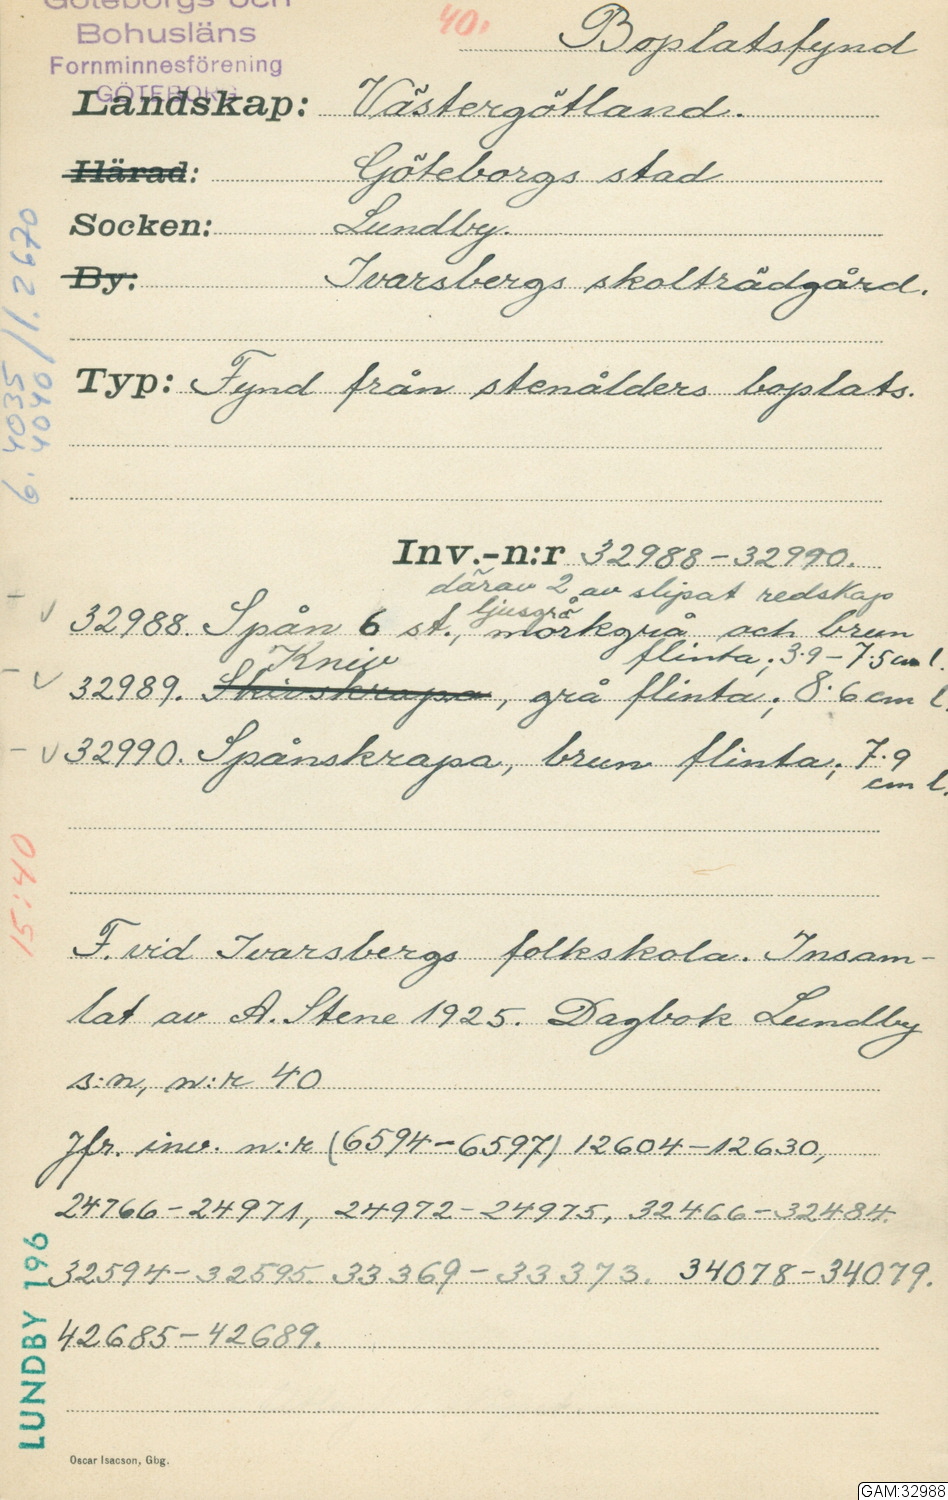 Göteborgs och
Bohusläns
Fornminnesförening
GÖTEBORG
40.
Boplatsfynd
Landskap: Västergötland.
Härad: Göteborgs stad
Socken: Lundby.
By: Ivarsbergs skolträdgård.
6. 4035 / 1. 2670
4040
Typ: Fynd från stenålders boplats.
Inv.-n:r 32988-32990.
därav 2 av slipat redskap
ljusgrå
32988. Spån 6 st., mörkgrå och brun
flinta; 3.9-7.5 cm l.
Kniv
32989. Skivskrapa, grå flinta; 8.6 cm l.
32990. Spånskrapa, brun flinta; 7.9
cm l.
15:40
F. vid Ivarsbergs folkskola. Insam-
lat av A. Stene 1925. Dagbok Lundby
s:n, n:r 40
Jfr. inv. n:r (6594-6597) 12604-12630,
24766-24971, 24972-24975, 32466-32484.
32594-32595. 33369-33373. 34078-34079.
42685-42689.
LUNDBY 196
Oscar Isacson, Gbg.
GAM:32988